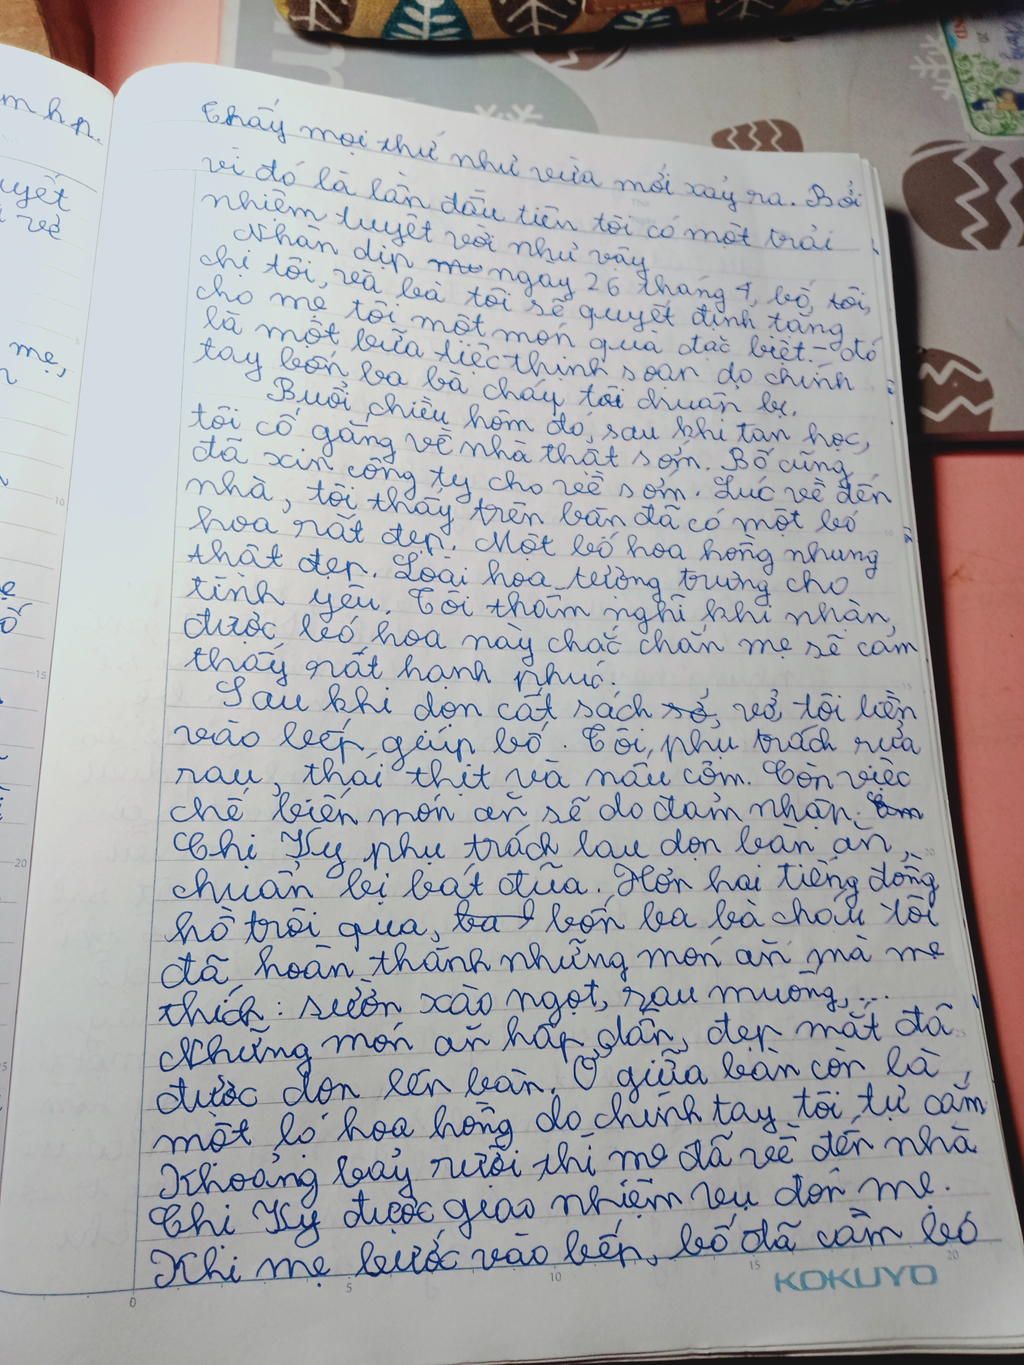 m h p.
uyết
mẹ,
thấy mọi thứ như vừa mới xảy ra. Bởi
vì đó là lần đầu tiên tôi có một trải
nhiệm tuyệt vời như vậy
Nhân dịp ngay 26 tháng 4, bố, tôi,
chị tôi, và bà tôi sẽ quyết định tặng
cho mẹ tôi một món quà đặc biệt - đó
là một bữa tiệc thịnh soạn do chính
tay bốn ba bà cháy tôi chuẩn bị.
Buổi chiều hôm đó, sau khi tan học,
tôi cố gắng về nhà thật sớm. Bố cũng
đã xin công ty cho về sớm. Lúc về đến
nhà, tôi thấy trên bàn đã có một bó
hoa rất đẹp. Một bó hoa hồng nhung
thật đẹp. Loại hoa tượng trưng cho
tình yêu. Tôi thầm nghĩ khi nhận
được bó hoa này chắc chắn mẹ sẽ cảm
thấy rất hạnh phúc.
Sau khi dọn cất sách sở, vở, tôi liền
vào bếp giúp bố. Tôi phụ trách rửa
rau, thái thịt và nấu cơm. Còn việc
chế biến món ăn sẽ do đảm nhận.
Chị Vy phụ trách lau dọn bàn ăn,
chuẩn bị bát đũa. Hơn hai tiếng đồng
hồ trôi qua, ba bốn ba bà cháu tôi
đã hoàn thành những món ăn mà mẹ
thích: sườn xào ngọt, rau muống,...
Những món ăn hấp dẫn, đẹp mắt đã
được dọn lên bàn. Ở giữa bàn còn là
một lọ hoa hồng do chính tay tôi tự cắm
Khoảng bảy rưỡi thì mẹ đã về đến nhà
Chị Vy được giao nhiệm vụ đón mẹ.
Khi mẹ bước vào bếp, bố đã cầm bó
0 5 10 15 20
KOKUYO